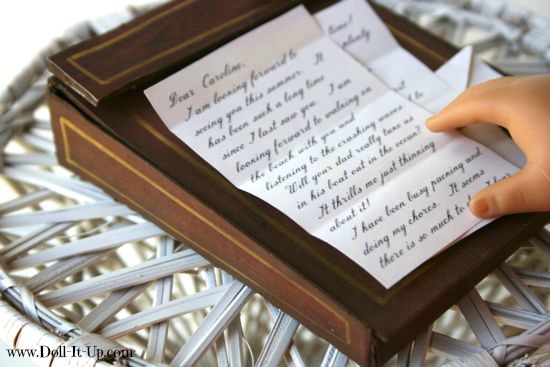 Dear Caroline,
I am looking forward to
seeing you this summer. It
has been such a long time
since I last saw you. I am
looking forward to walking on
the beach with you and
listening to the crashing waves.
Will your dad really take us
in his boat out in the ocean?
It thrills me just thinking
about it!
I have been busy packing and
doing my chores. It seems
there is so much to do
time!
plenty
www.Doll-It-Up.com